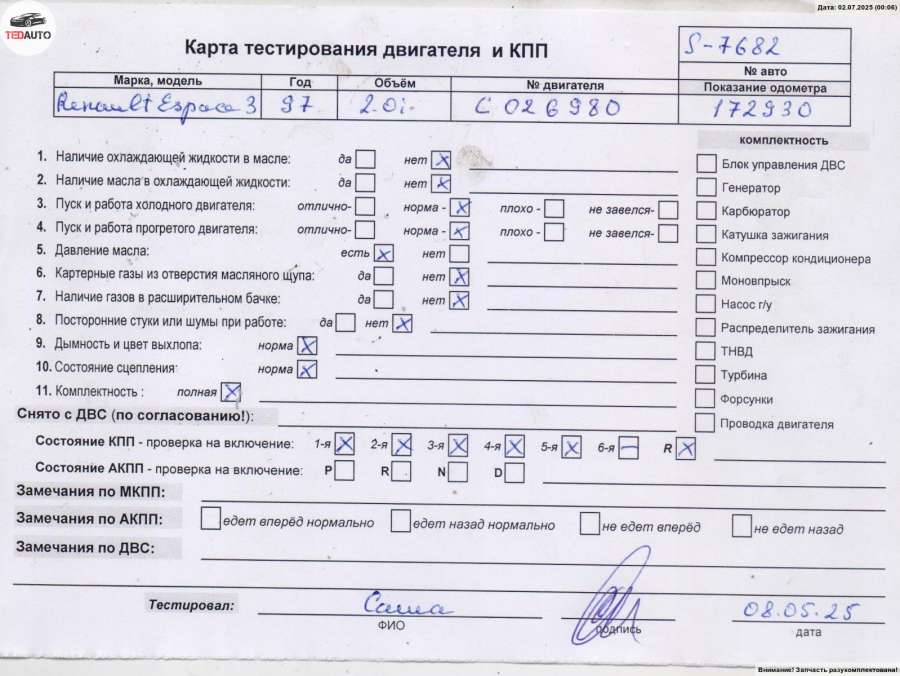 Дата: 02.07.2025 (00:06)
TEDAUTO
Карта тестирования двигателя и КПП
S-7682
№ авто
Марка, модель Год Объём № двигателя Показание одометра
Renault Espace 3 97 2.0i. C026980 172930
комплектность
1. Наличие охлаждающей жидкости в масле: да нет X
Блок управления ДВС
2. Наличие масла в охлаждающей жидкости: да нет X
Генератор
3. Пуск и работа холодного двигателя: отлично- норма - X плохо - не завелся-
Карбюратор
4. Пуск и работа прогретого двигателя: отлично- норма - X плохо - не завелся-
Катушка зажигания
5 Давление масла: есть X нет
Компрессор кондиционера
6. Картерные газы из отверстия масляного щупа: да нет X
Моновпрыск
7. Наличие газов в расширительном бачке: да нет X
Насос г/у
8. Посторонние стуки или шумы при работе: да нет X
Распределитель зажигания
9. Дымность и цвет выхлопа: норма X
ТНВД
10. Состояние сцепления: норма X
Турбина
11. Комплектность : полная X
Форсунки
Снято с ДВС (по согласованию!):
Проводка двигателя
Состояние КПП - проверка на включение: 1-я X 2-я X 3-я X 4-я X 5-я X 6-я — R X
Состояние АКПП - проверка на включение: P R N D
Замечания по МКПП:
Замечания по АКПП: едет вперёд нормально едет назад нормально не едет вперёд не едет назад
Замечания по ДВС:
Тестировал: Саша 08.05.25
ФИО подпись дата
Внимание! Запчасть разукомплектована!